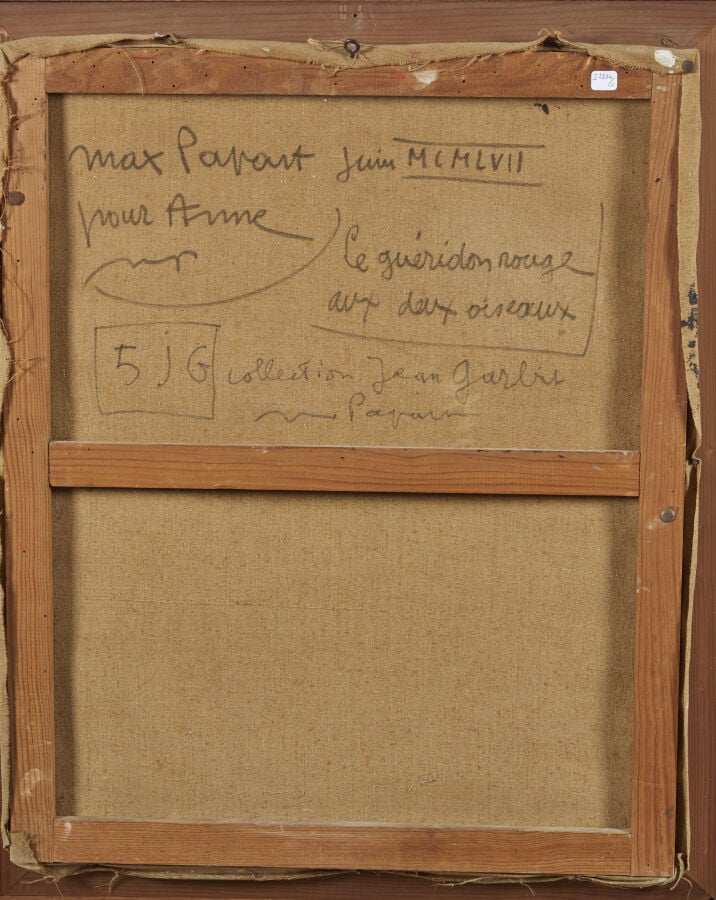 max Papart Juin MCMLVII
pour Anne
Le guéridon rouge
aux deux oiseaux
5 J G collection Jean
Papart